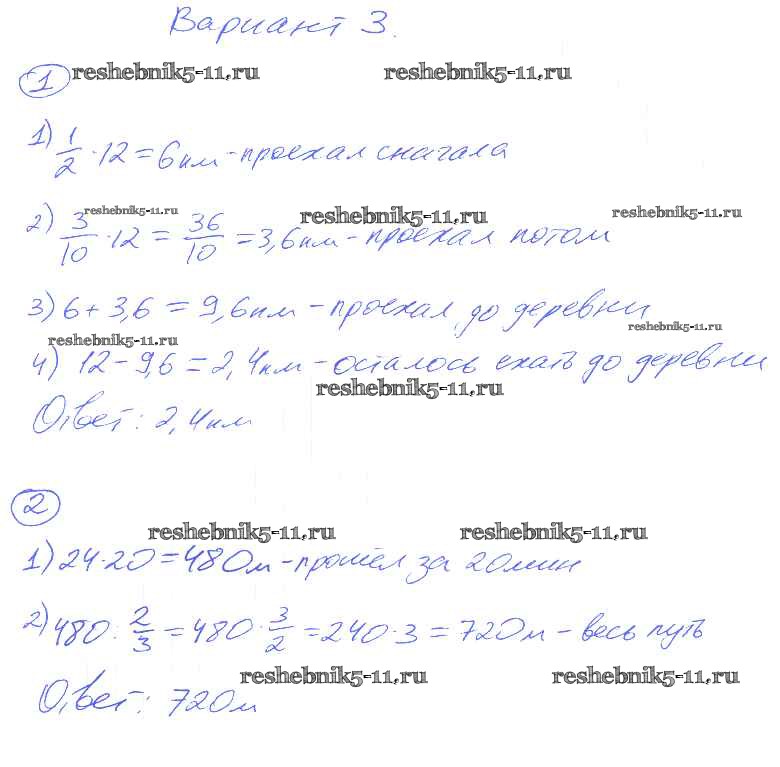 Вариант 3.
1 reshebnik5-11.ru reshebnik5-11.ru
1) 1/2 · 12 = 6км - проехал сначала
reshebnik5-11.ru reshebnik5-11.ru reshebnik5-11.ru
2) 3/10 · 12 = 36/10 = 3,6км - проехал потом
3) 6 + 3,6 = 9,6км - проехал до деревни
reshebnik5-11.ru reshebnik5-11.ru
4) 12 - 9,6 = 2,4км - осталось ехать до деревни
reshebnik5-11.ru
Ответ: 2,4км
2
reshebnik5-11.ru reshebnik5-11.ru
1) 24 · 20 = 480м - прошёл за 20мин
2) 480 : 2/3 = 480 · 3/2 = 240 · 3 = 720м - весь путь
reshebnik5-11.ru reshebnik5-11.ru
Ответ: 720м